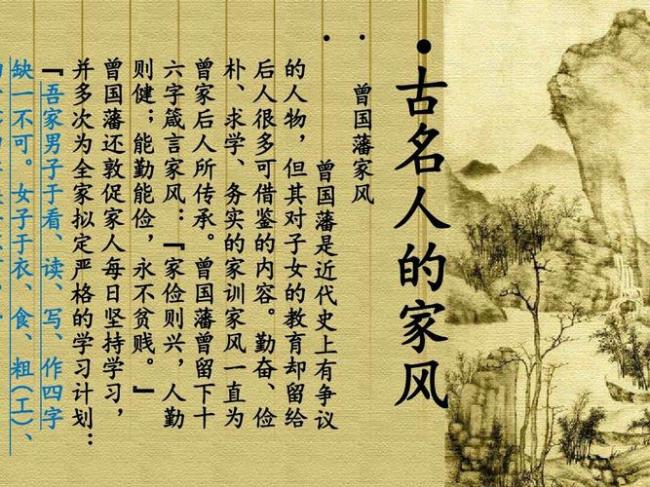 •古名人的家风
• 曾国藩家风
• 曾国藩是近代史上有争议
的人物，但其对子女的教育却留给
后人很多可借鉴的内容。勤奋、俭
朴、求学、务实的家训家风一直为
曾家后人所传承。曾国藩曾留下十
六字箴言家风：『家俭则兴，人勤
则健；能勤能俭，永不贫贱。』
曾国藩还敦促家人每日坚持学习，
并多次为全家拟定严格的学习计划：
『吾家男子于看、读、写、作四字
缺一不可。女子于衣、食、粗(工)、